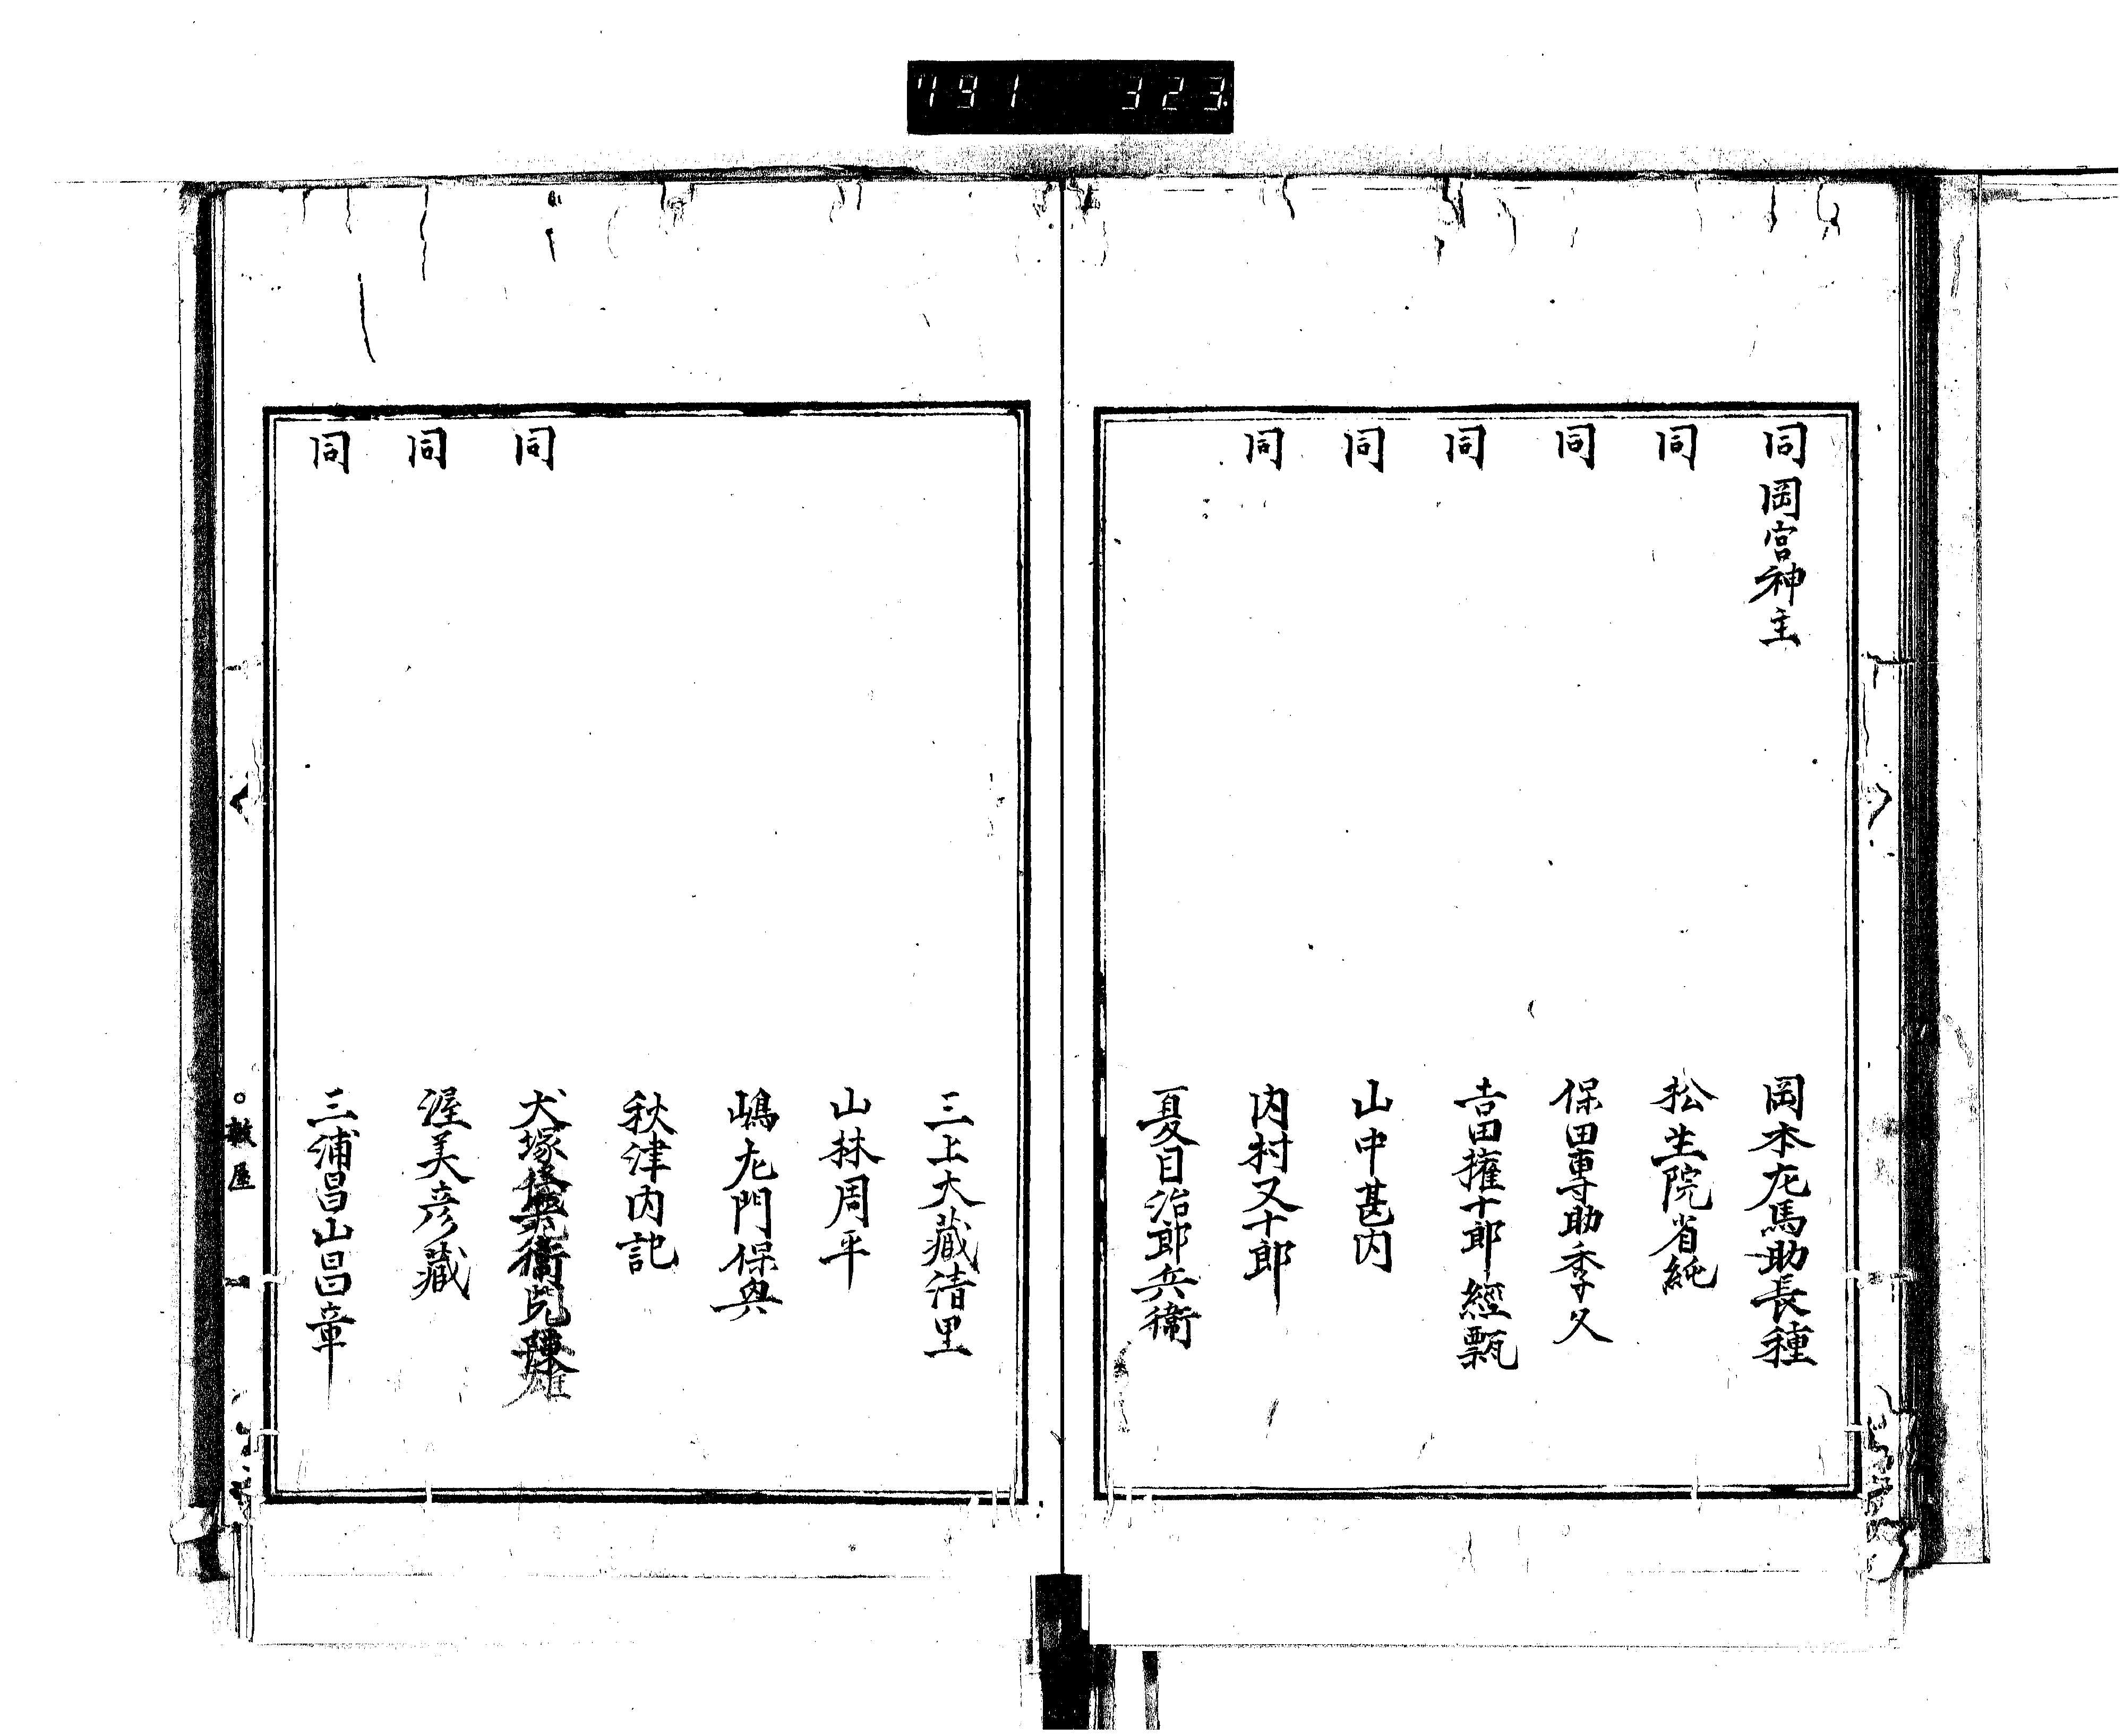 791 323
同 岡宮神主 岡本左馬助長種
同 松生院省純
同 保田専助季久
同 吉田権十郎經甄
同 山中甚内
同 内村又十郎
夏目治郎兵衛
三上大蔵清里
山林周平
嶋左門保奥
秋津内記
同 犬塚 兵衛
同 渥美彦蔵
同 三浦昌山昌章